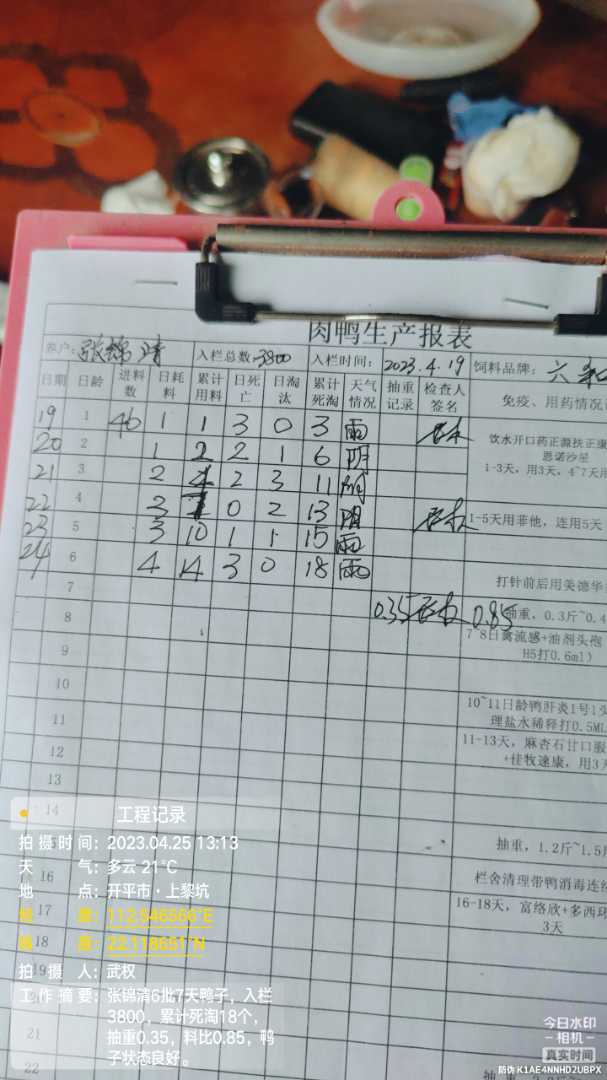 肉鸭生产报表
养户: 张锦清 入栏总数: 3800 入栏时间: 2023.4.19 饲料品牌: 六和
日期 日龄 进料数 日耗料 累计用料 日死亡 日淘汰 累计死淘 天气情况 抽重记录 检查人签名 免疫、用药情况
19 1 46 1 1 3 0 3 雨
饮水开口药正源扶正康
恩诺沙星
1-3天,用3天,4~7天用
20 2 1 2 2 1 6 阴
21 3 2 4 2 3 11 阴
22 4 3 7 0 2 13 阴 1-5天用菲他,连用5天
23 5 3 10 1 1 15 雨
24 6 4 14 3 0 18 雨 打针前后用美德华
7 0.35 0.85 抽重,0.3斤~0.4
8 7~8日禽流感+油剂头孢
H5打0.6ml)
9
10 10~11日龄鸭肝炎1号1头
理盐水稀释打0.5ML
11 11-13天,麻杏石甘口服
+佳牧速康,用3天
12
13
14
抽重,1.2斤~1.5斤
16 栏舍清理带鸭消毒连续
17 16-18天,富络欣+多西环
3天
18
19
21
22 抽重
工程记录
拍摄时间: 2023.04.25 13:13
天气: 多云 21℃
地点: 开平市·上黎坑
经度: 112.546566°E
纬度: 22.118651°N
拍摄人: 武权
工作摘要: 张锦清6批7天鸭子,入栏
3800,累计死淘18个,
抽重0.35,料比0.85,鸭
子状态良好。
今日水印
-相机-
真实时间
防伪 K1AE4NNHD2UBPX